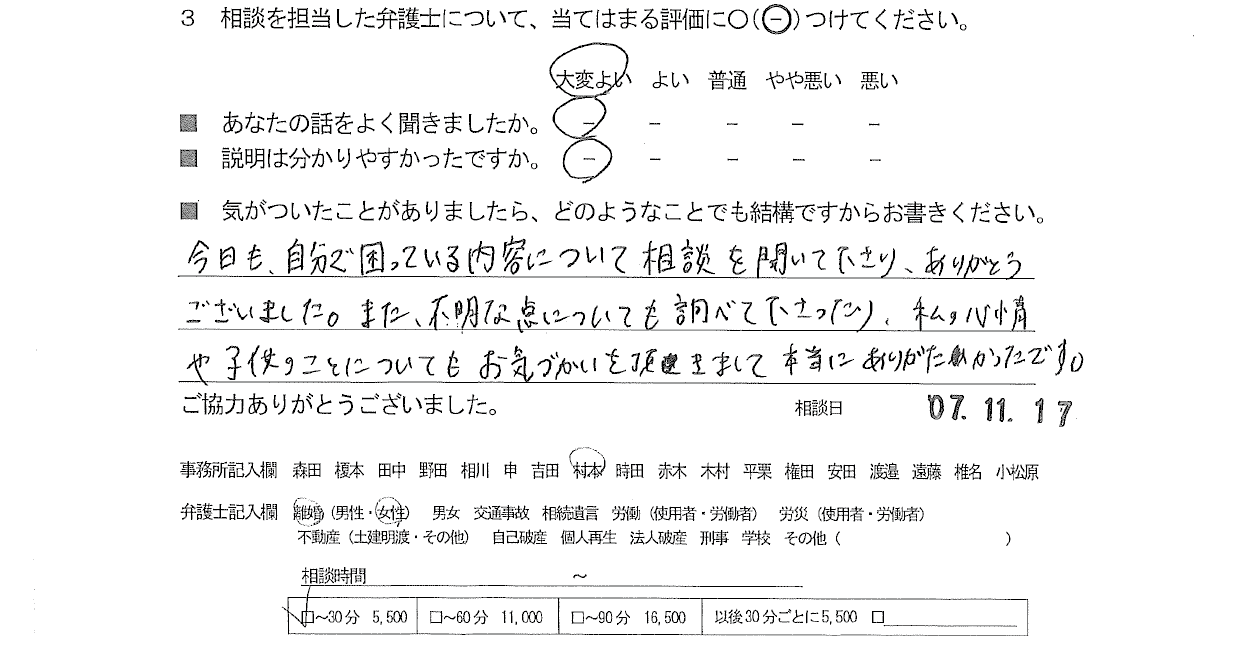 3 相談を担当した弁護士について、当てはまる評価に○(⊖)つけてください。
大変よい よい 普通 やや悪い 悪い
■ あなたの話をよく聞きましたか。 − − − − −
■ 説明は分かりやすかったですか。 − − − − −
■ 気がついたことがありましたら、どのようなことでも結構ですからお書きください。
今日も、自分で困っている内容について相談を聞いて下さり、ありがとう
ございました。また、不明な点についても調べて下さったり、私の心情
や子供のことについてもお気づかいを頂きまして本当にありがたかったです。
ご協力ありがとうございました。 相談日 '07.11.17
事務所記入欄 森田 榎本 田中 野田 相川 申 吉田 村本 時田 赤木 木村 平栗 権田 安田 渡邉 遠藤 椎名 小松原
弁護士記入欄 離婚(男性・女性) 男女 交通事故 相続遺言 労働(使用者・労働者) 労災(使用者・労働者)
不動産(土建明渡・その他) 自己破産 個人再生 法人破産 刑事 学校 その他( )
相談時間 ～
□～30分 5,500 □～60分 11,000 □～90分 16,500 以後30分ごとに5,500 □